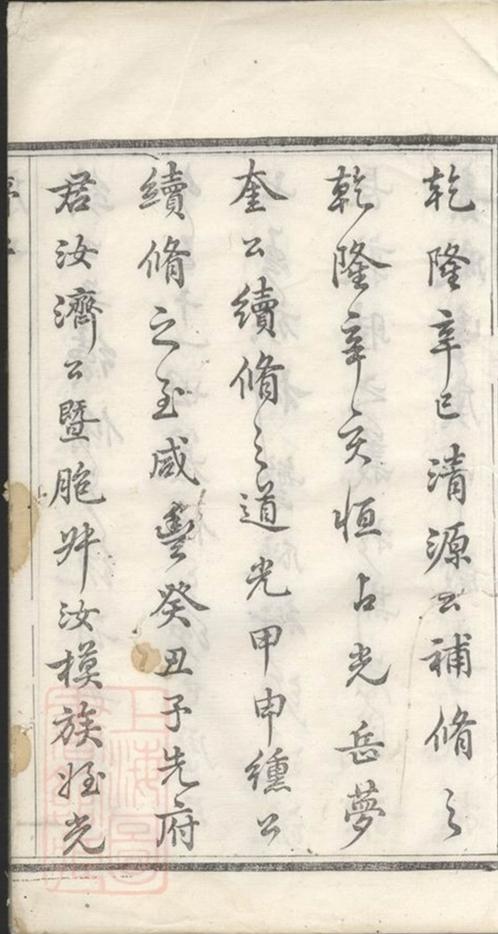 乾隆辛巳清源公補脩之
乾隆辛亥恒占光岳夢
奎公續脩之道光甲申纁公
續脩之至咸豐癸丑予先府
君汝濟公暨胞叔汝模族姪光
序